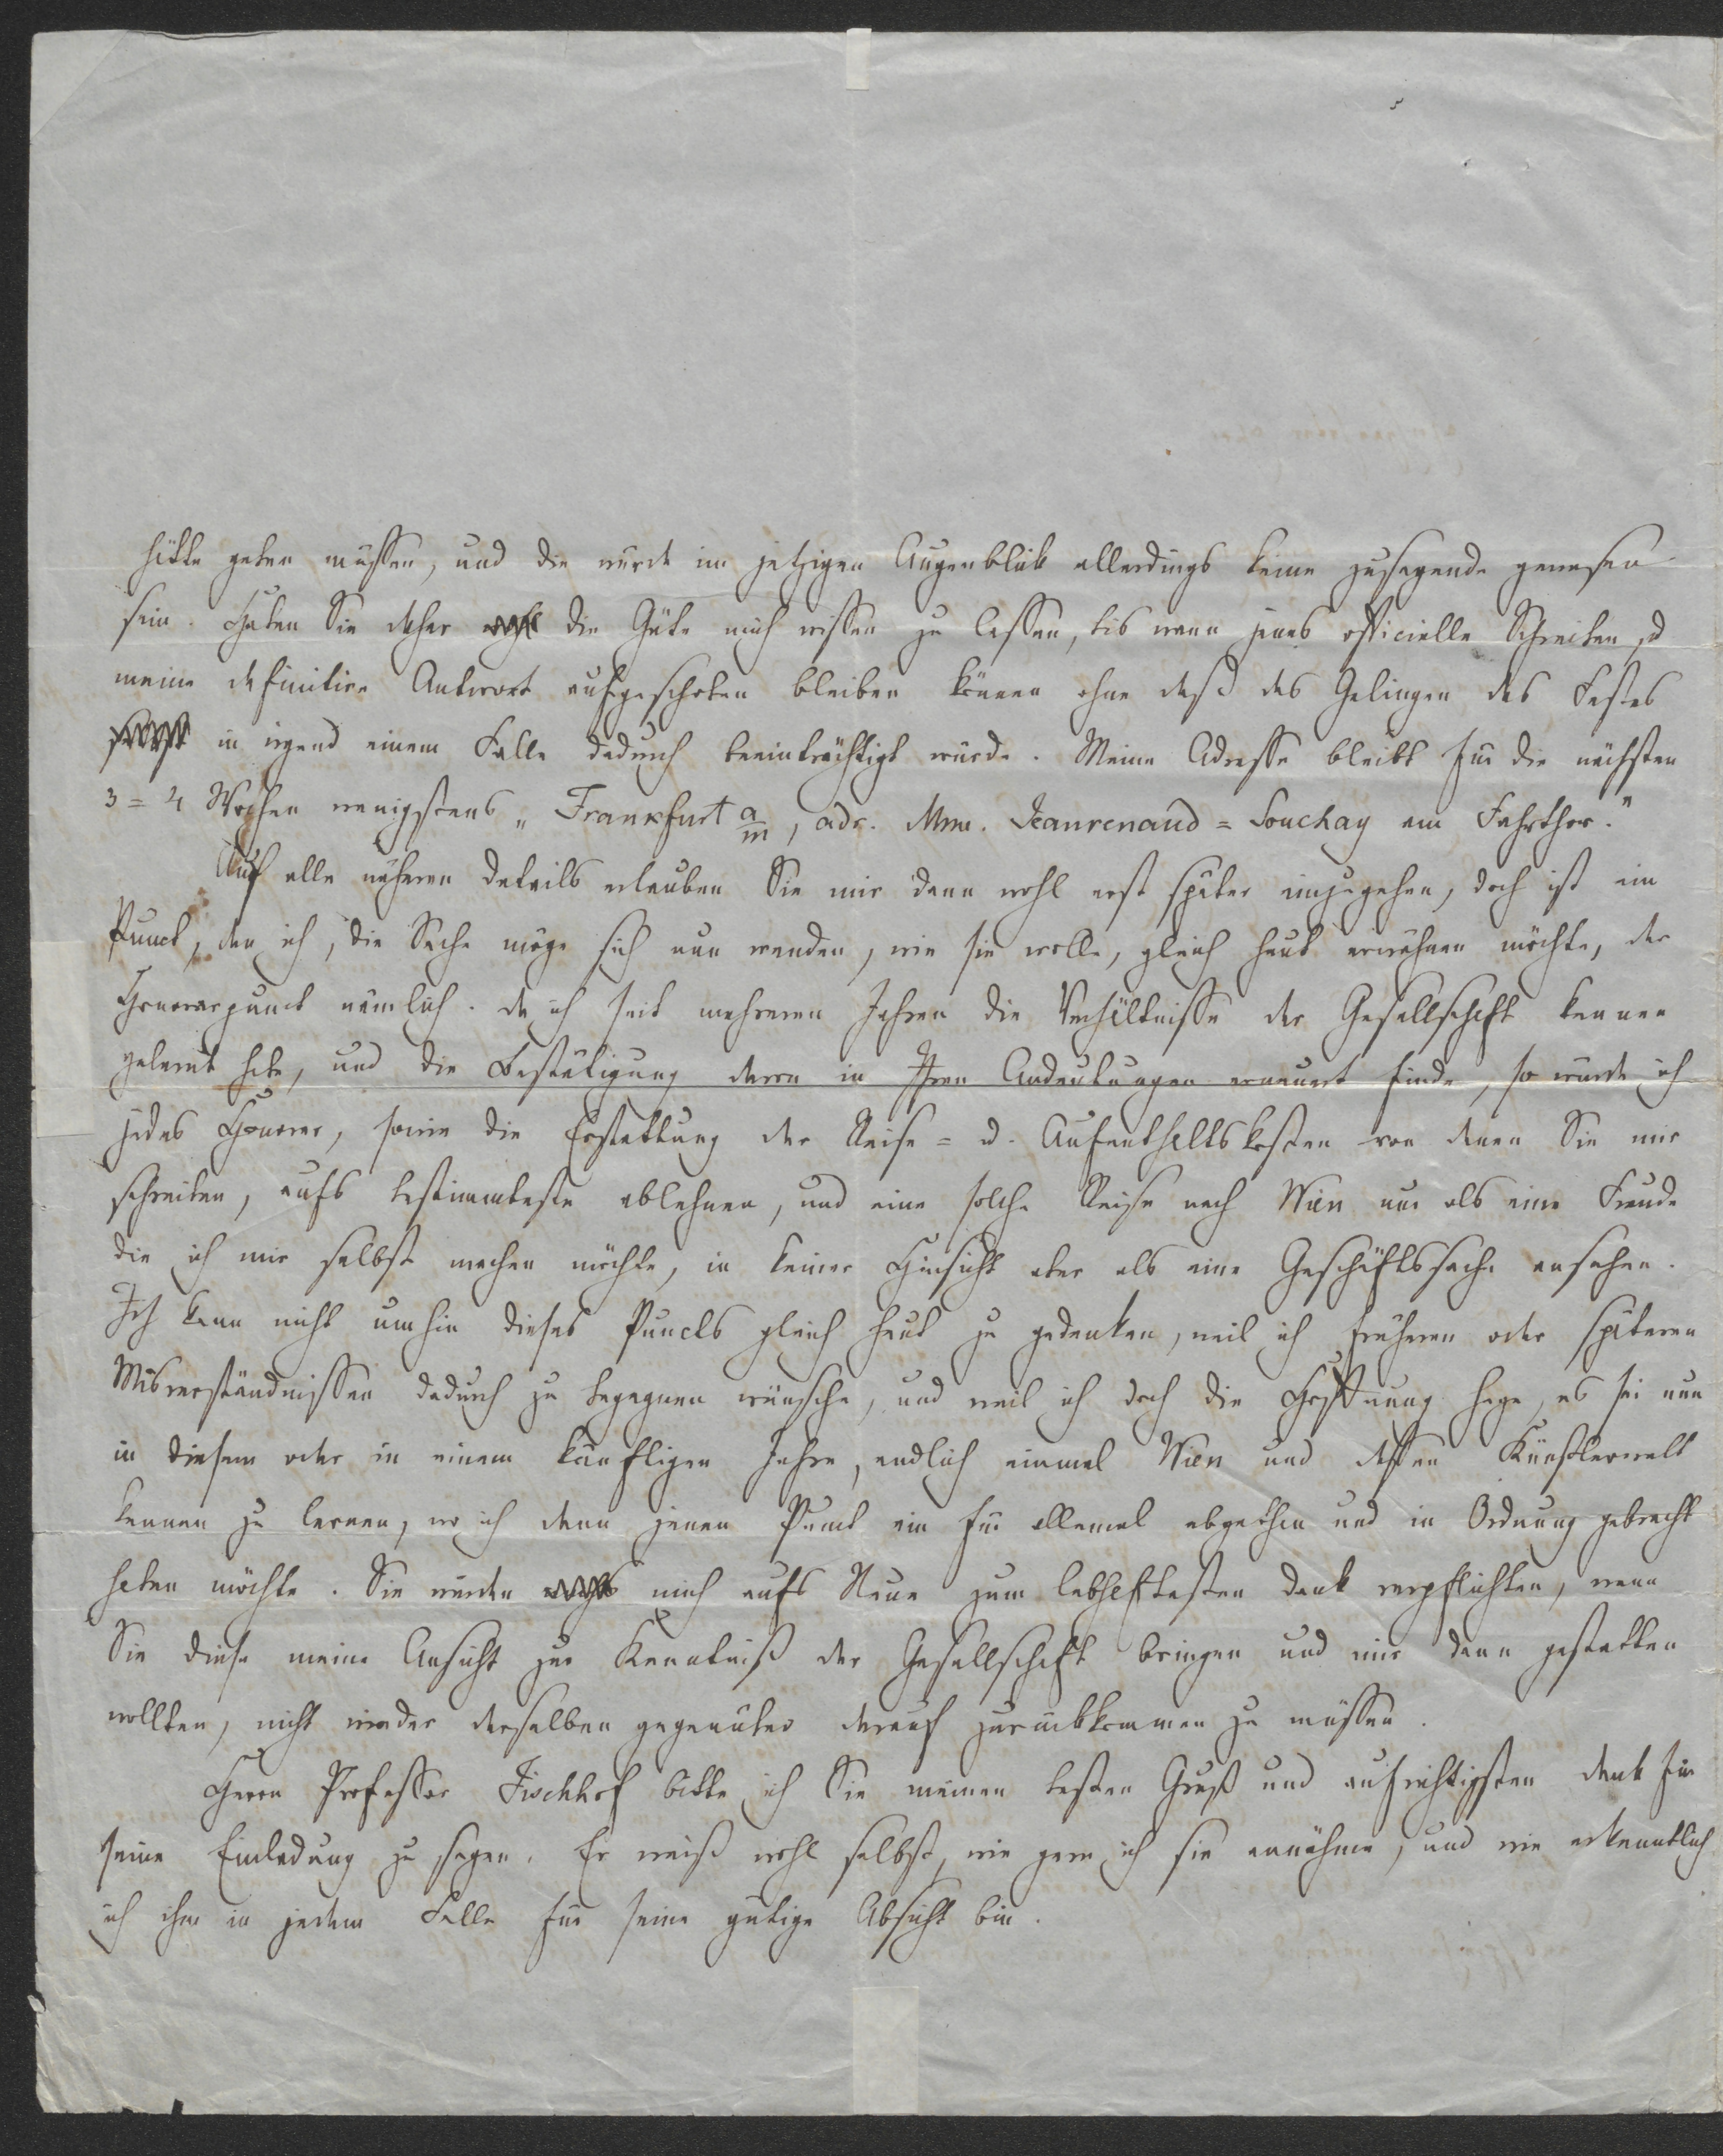 hätte geben müssen, und die würde im jetzigen Augenblick allerdings keine zusagende gewesen
sein. Haben Sie daher die Güte mich wissen zu lassen, bis wann jenes officielle Schreiben u.
meine definitive Antwort aufgeschoben bleiben können ohne daß das Gelingen des Festes
in irgend einem Falle dadurch beeinträchtigt würde. Meine Adresse bleibt für die nächsten
3=4 Wochen wenigstens „Frankfurt a/m, adr. Mme. Jeanrenaud=Souchay am Fahrthor."
Auf alle näheren Details erlauben Sie mir dann wohl erst später einzugehen, doch ist ein
Punct, den ich, die Sache möge sich nun wenden, wie sie wolle, gleich heut erwähnen möchte, der
Honorarpunct nämlich. Da ich seit mehreren Jahren die Verhältnisse der Gesellschaft kennen
gelernt habe, und die Bestätigung davon in Ihren Andeutungen erneuert finde, so würde ich
jedes Honorar, sowie die Erstattung der Reise= u. Aufenthaltskosten von denen Sie mir
schreiben, aufs bestimmteste ablehnen, und eine solche Reise nach Wien nur als eine Freude
die ich mir selbst machen möchte, in keiner Hinsicht aber als eine Geschäftssache ansehen.
Ich kann nicht umhin dieses Puncts gleich heut zu gedenken, weil ich früheren oder späteren
Misverständnissen dadurch zu begegnen wünsche, und weil ich doch die Hoffnung hege, es sei nun
in diesem oder in einem künftigen Jahre, endlich einmal Wien und dessen Künstlerwelt
kennen zu lernen, wo ich dann jenen Punct ein für allemal abgethan und in Ordnung gebracht
haben möchte. Sie würden mich aufs Neue zum lebhaftesten Dank verpflichten, wenn
Sie diese meine Ansicht zur Kenntniß der Gesellschaft bringen und mir dann gestatten
wollten, nicht wieder derselben gegenüber darauf zurückkommen zu müssen.
Herrn Professor Fischhof bitte ich Sie meinen besten Gruß und aufrichtigsten Dank für
seine Einladung zu sagen. Er weiß wohl selbst, wie gern ich sie annähme, und wie erkenntlich
ich ihm in jedem Falle für seine gütige Absicht bin.